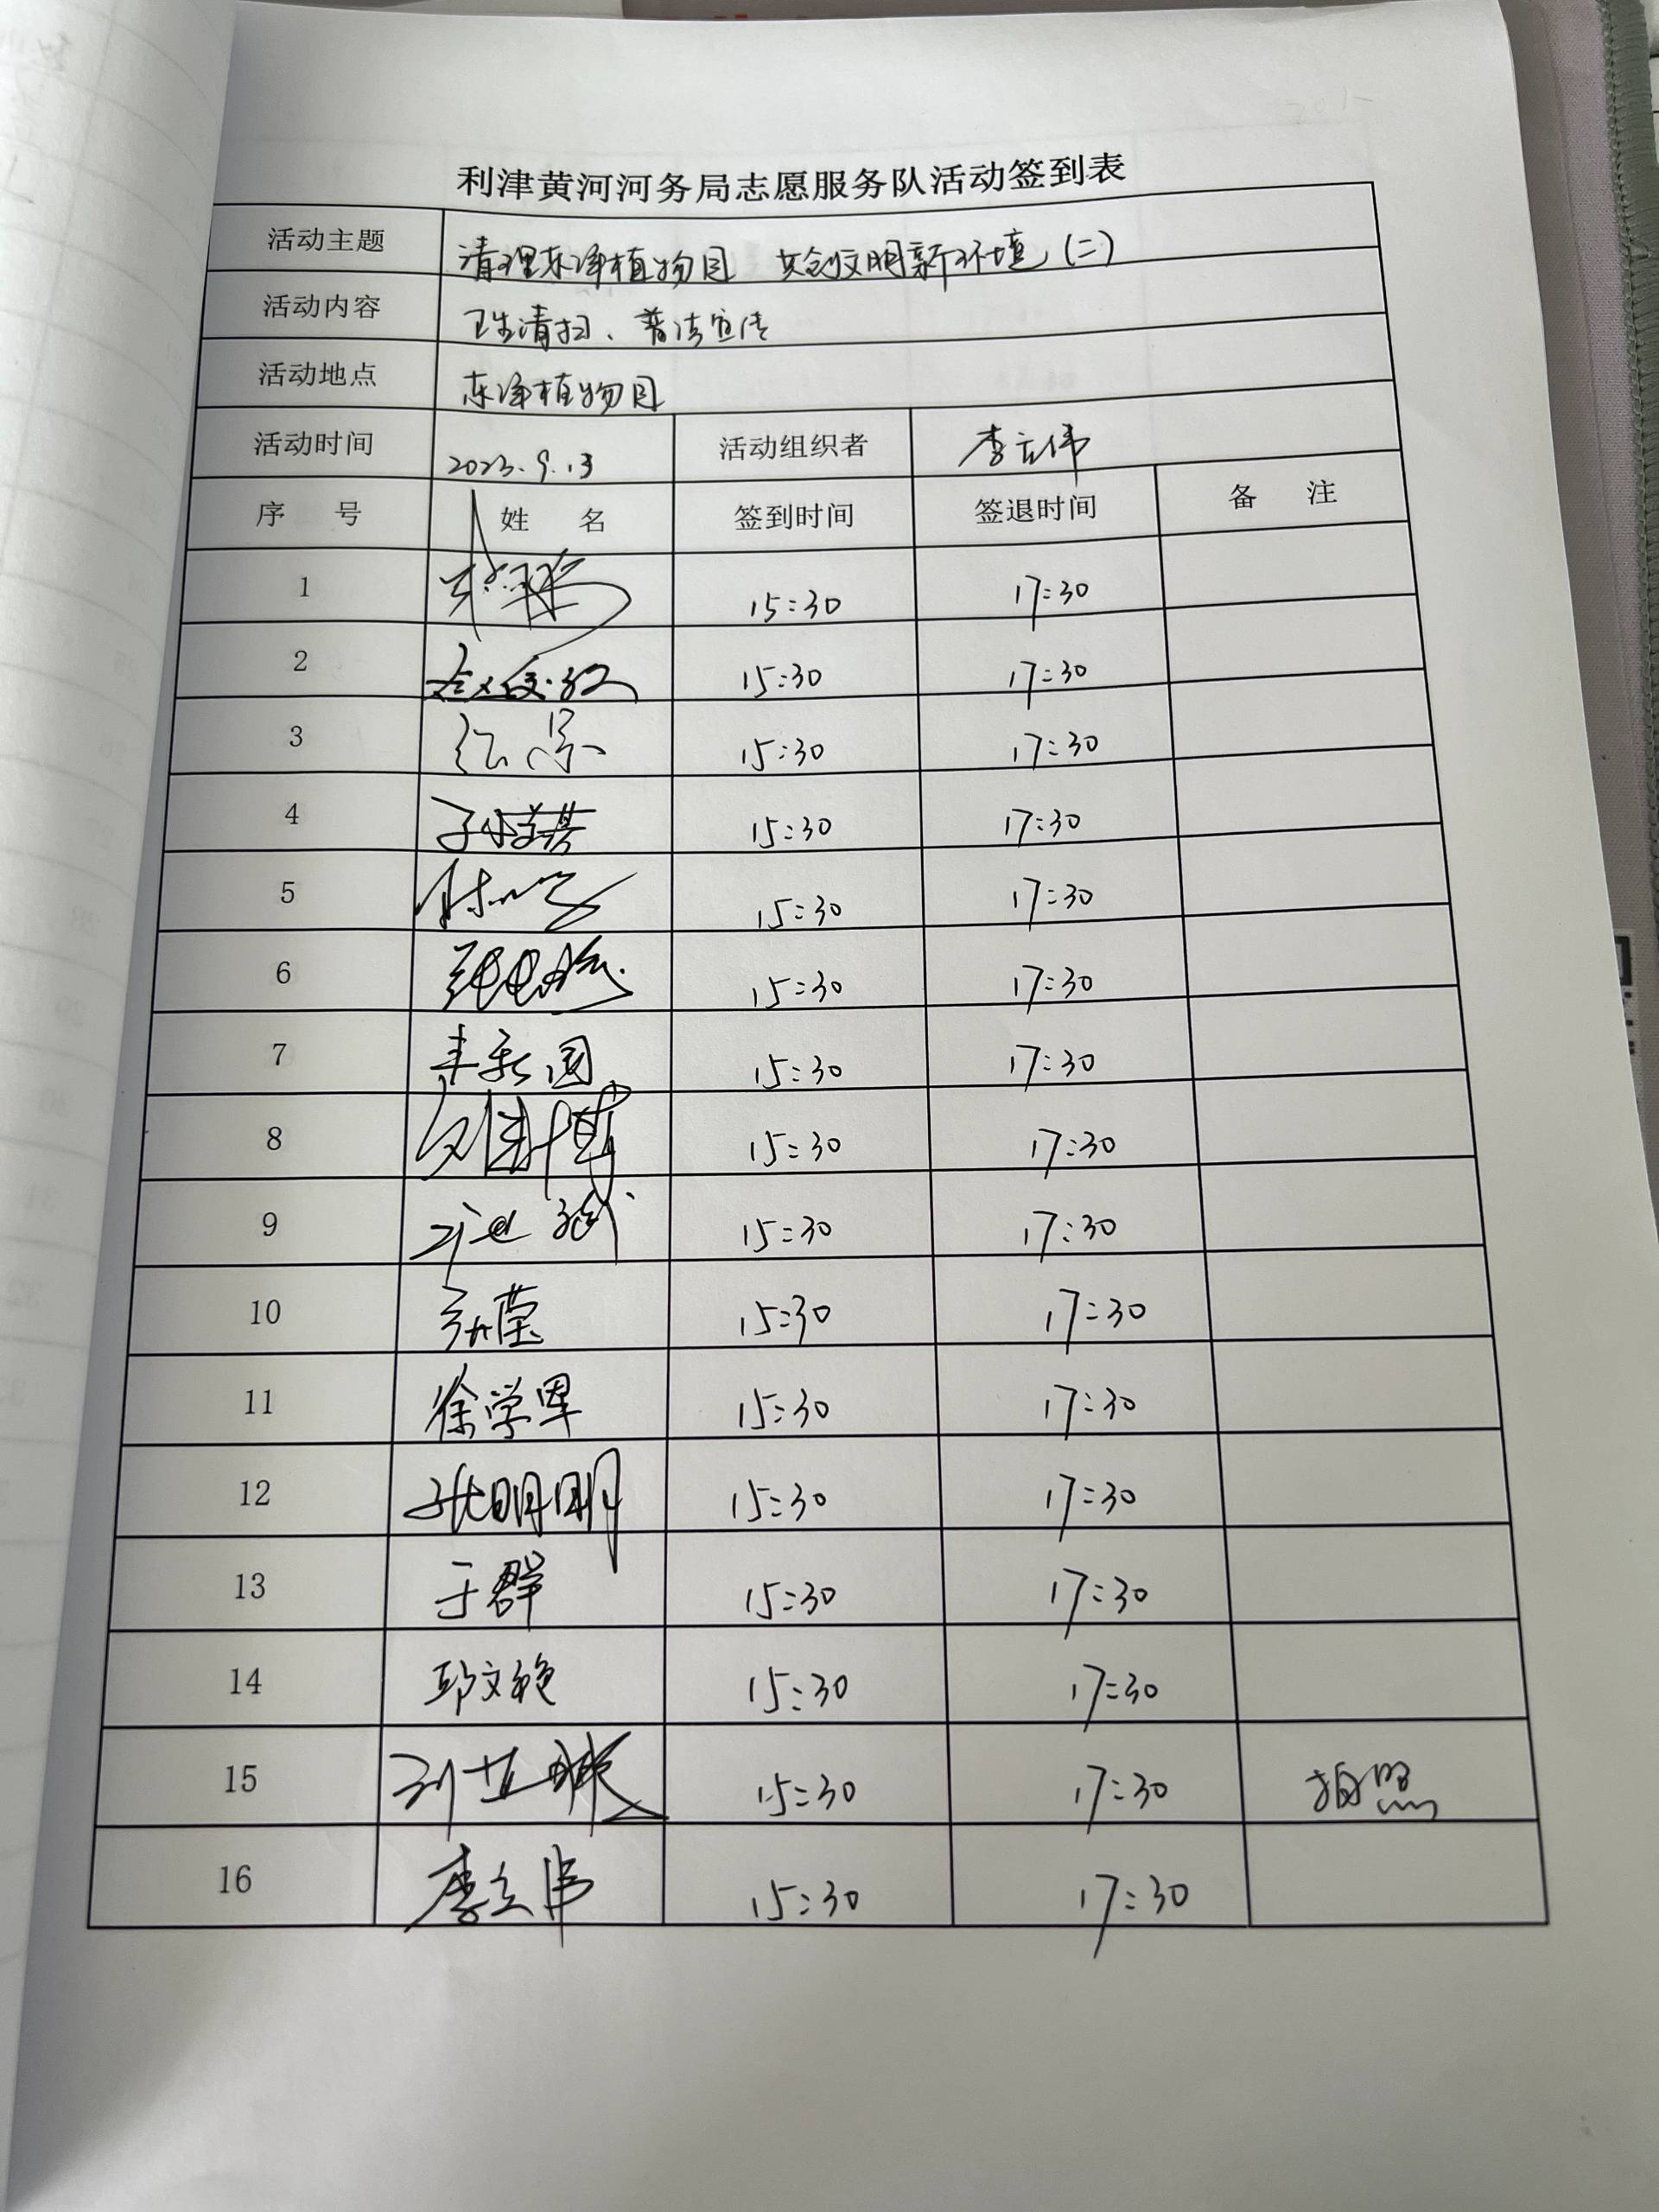 利津黄河河务局志愿服务队活动签到表
活动主题 清理东津植物园 共创文明新环境（二）
活动内容 卫生清扫、普法宣传
活动地点 东津植物园
活动时间 2023.9.13 活动组织者 李立伟
序 号 姓 名 签到时间 签退时间 备 注
1 15:30 17:30
2 15:30 17:30
3 15:30 17:30
4 15:30 17:30
5 15:30 17:30
6 15:30 17:30
7 15:30 17:30
8 15:30 17:30
9 15:30 17:30
10 孙莹 15:30 17:30
11 徐学军 15:30 17:30
12 张明明 15:30 17:30
13 于群 15:30 17:30
14 邱文艳 15:30 17:30
15 15:30 17:30 拍照
16 李立伟 15:30 17:30